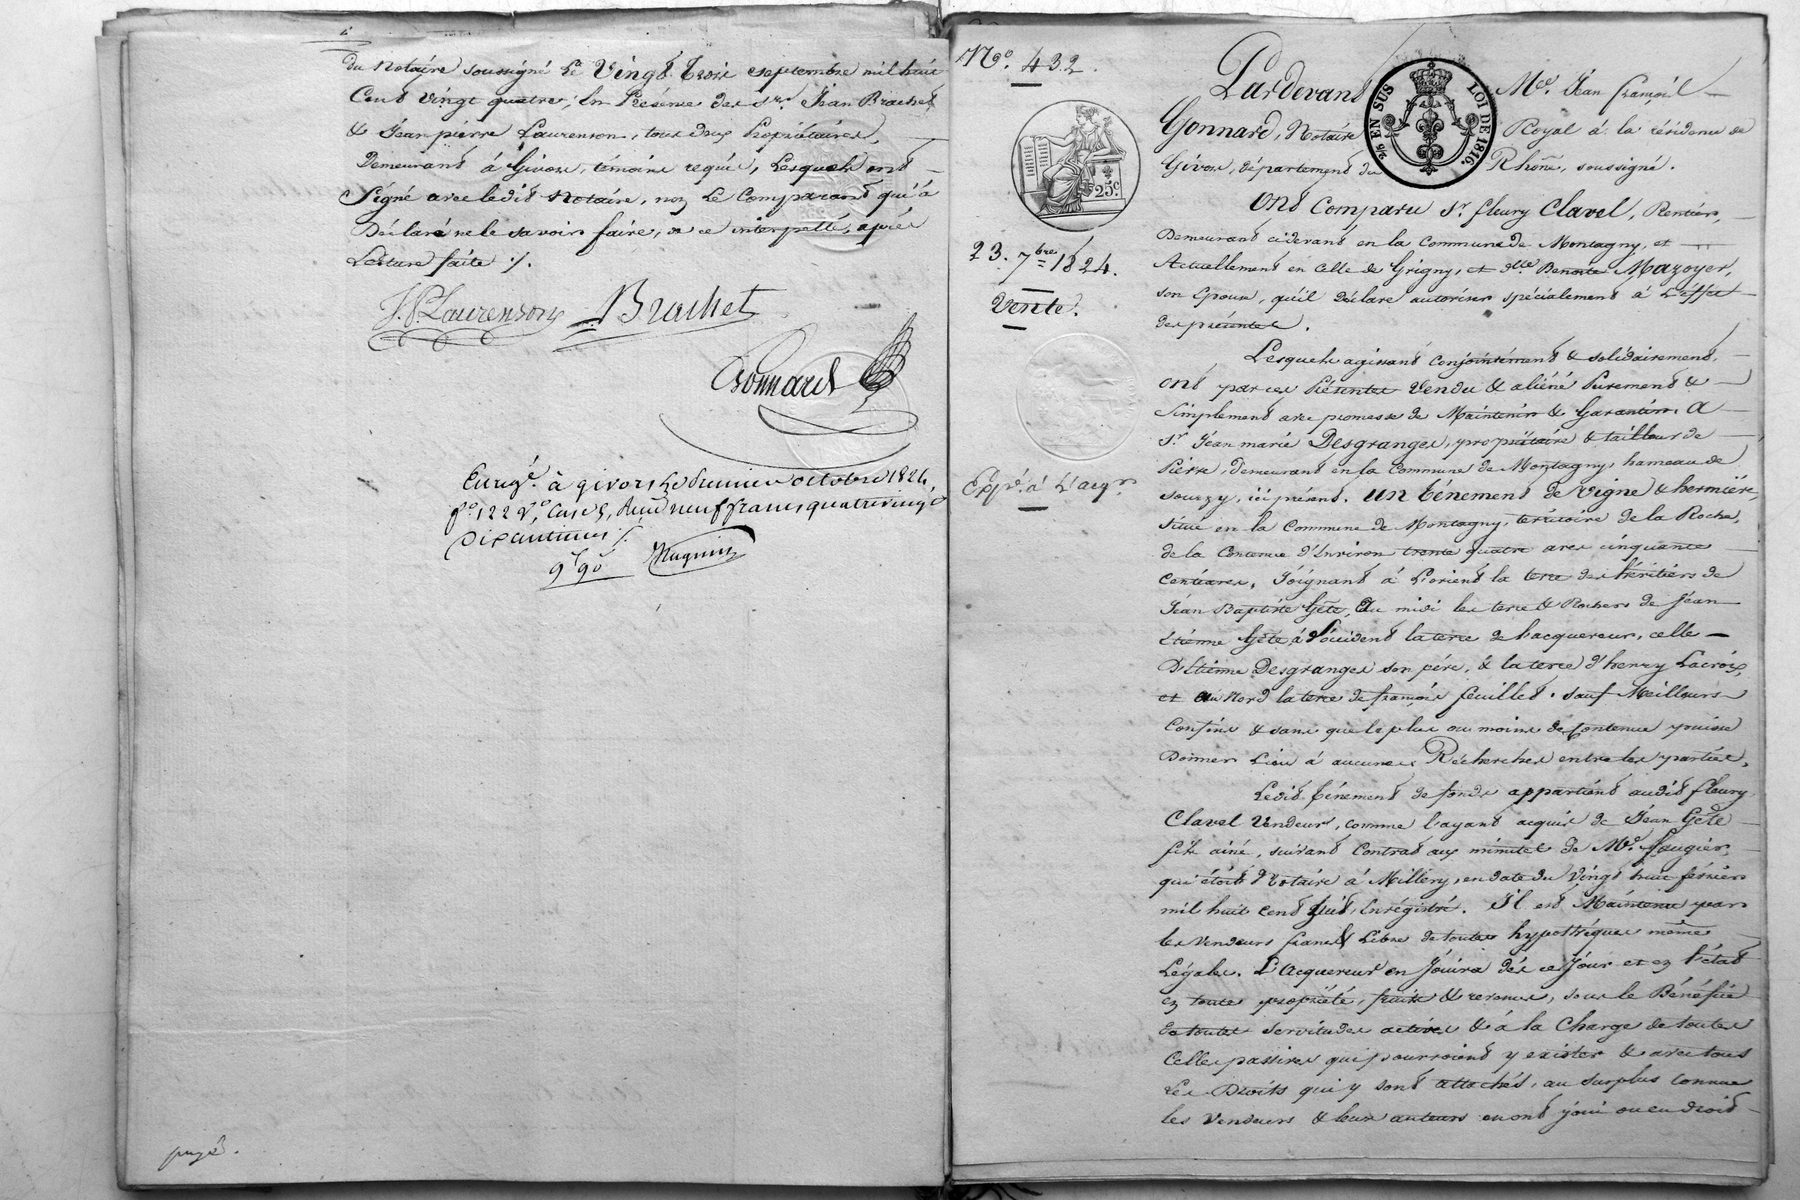 du Notaire soussigné le Vingt trois septembre mil huit
Cent Vingt quatre, En Présence des srs. Jean Brachet
& Jean pierre Laurenson, tous deux Propriétaires,
Demeurant à Givors, témoins requis, Lesquels ont
Signé avec ledit Notaire, non Le Comparant qui a
Déclaré ne le savoir faire, de ce interpellé, après
Lecture faite ./.
J. P. Laurenson Brachet
Gonnard
Enregé. à givors le Premier octobre 1824,
fo. 122 Vo. Case 5, Reçu neuf francs quatrevingt
Dix centimes ./.
9f 90c
payé.
No. 432.
EN SUS
LOI DE 1816.
25c.
23. 7bre 1824.
Vente.
Expé. à L'acqr.
Pardevant Me. Jean françois
Gonnard, Notaire Royal à la résidence de
Givors, département du Rhône, soussigné.
Ont Comparu sr. fleury Clavel, Rentier,
Demeurant cidevant en la Commune de Montagny, et
Actuellement en Celle de Grigny, et dlle Benoite Mazoyer,
son Epouse, qu'il déclare autoriser spécialement à L'effet
des présentes.
Lesquels agissant conjointement & solidairement,
Ont par ces Présentes Vendu & aliéné Purement &
Simplement avec promesse de Maintenir & Garantir, A
sr. Jean marie Desgranges, propriétaire & tailleur de
Pierre, demeurant en la Commune de Montagny, hameau de
sourzy, ici présent. un ténement de Vigne & hermière,
situé en la Commune de Montagny, territoire de la Roche,
de la Contenue d'Environ trente quatre ares cinquante
Centiares, Joignant à L'orient la terre des héritiers de
Jean Baptiste Gête, Au midi les terre & Rochers de Jean
Etienne Gête à L'occident la terre de Lacquereur, celle
D'Etienne Desgranges son père, & la terre d'henry Lacroix,
et au Nord la terre de françois feuillet. sauf Meilleurs
Confins & sans que le plus ou moins de Contenue puisse
Donner Lieu à aucunes Recherches entre les parties.
Ledit ténement de fonds appartient audit fleury
Clavel Vendeur, comme l'ayant acquis de Jean Gête
fils ainé, suivant Contrat aux minutes de Me. faugier,
qui étoit Notaire à Millery, en date du Vingt huit février
mil huit cent huit, Enrégistré. Il est Maintenu par
les Vendeurs franc & Libre de toutes hypothèques même
Légales. L'Acquereur en Jouira dès ce Jour et en l'état
en toute propriété, fruits & revenus, sous le Bénéfice
De toutes servitudes actives & à la Charge de toutes
Celles passives qui pourroient y exister & avec tous
Les Droits qui y sont attachés, au surplus comme
les Vendeurs & leurs auteurs en ont joui ou eu droit